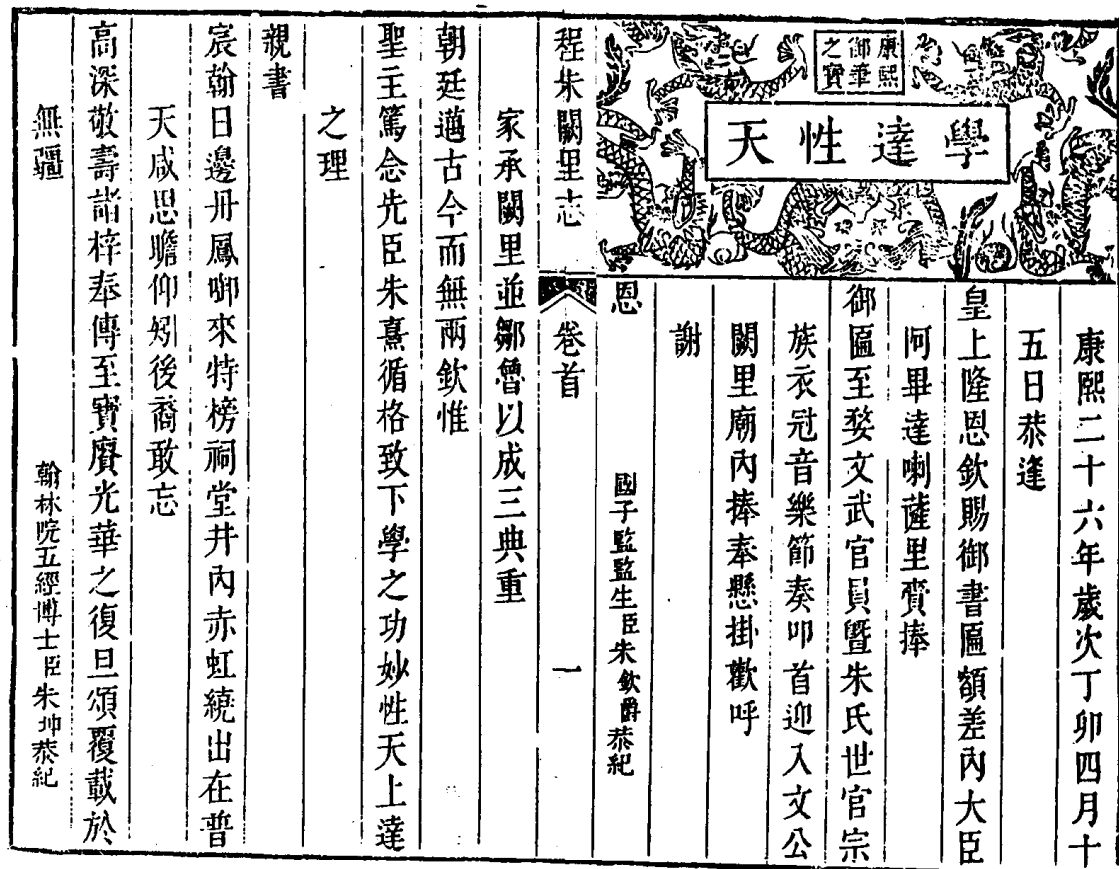 康熙
御筆
之寶
學達性天
康熙二十六年歲次丁卯四月十
五日恭逢
皇上隆恩欽賜御書匾額差內大臣
阿畢達喇薩里賫捧
御匾至婺文武官員暨朱氏世官宗
族衣冠音樂節奏叩首迎入文公
闕里廟內捧奉懸掛歡呼
謝
恩
國子監監生臣朱欽爵恭紀
程朱闕里志
卷首
一
家承闕里並鄒魯以成三典重
朝廷邁古今而無兩欽惟
聖主篤念先臣朱熹循格致下學之功妙性天上達
之理
親書
宸翰日邊丹鳳啣來特榜祠堂井內赤虹繞出在普
天咸思瞻仰矧後裔敢忘
高深敬壽諸梓奉傳至寶賡光華之復旦頌覆載於
無疆
翰林院五經博士臣朱坤恭紀